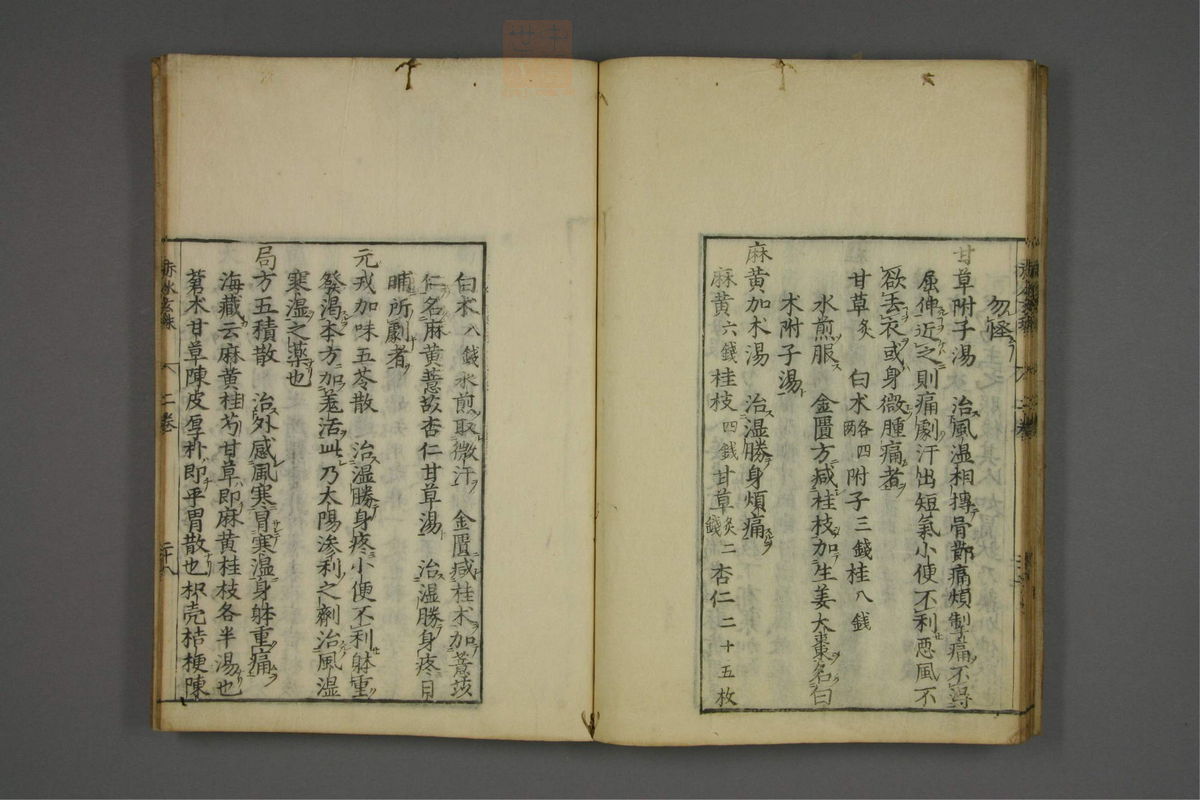 勿怪
甘草附子湯 治風湿相摶骨節痛煩掣痛不得
屈伸近之則痛劇汗出短氣小便不利悪風不
欲去衣或身微腫痛者
甘草炙 白朮各四両 附子三錢桂八錢
水煎服 金匱方减桂枝加生姜大棗名白
朮附子湯
麻黄加朮湯 治湿勝身煩痛
麻黄六錢桂枝四錢甘草炙二錢杏仁二十五枚
白朮八錢水煎取微汗 金匱减桂朮加薏苡
仁名麻黄薏苡杏仁甘草湯 治湿勝身疼日
晡所劇者
元戎加味五苓散 治湿勝身疼小便不利躰重
發渇本方加羗活此乃太陽滲利之劑治風湿
寒湿之薬也
局方五積散 治外感風寒冒寒湿身躰重痛
海藏云麻黄桂芍甘草即麻黄桂枝各半湯也
蒼朮甘草陳皮厚朴即平胃散也枳壳桔梗陳
赤水玄珠 二巻 二十八